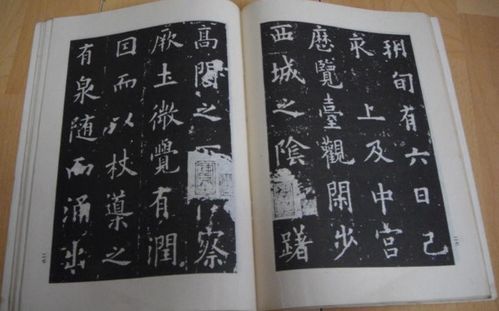 朔旬有六日己
亥上及中宮
歷覽臺觀閑步
西城之陰躇
高閣之察
厥土微覺有潤
因而以杖導之
有泉隨而涌出